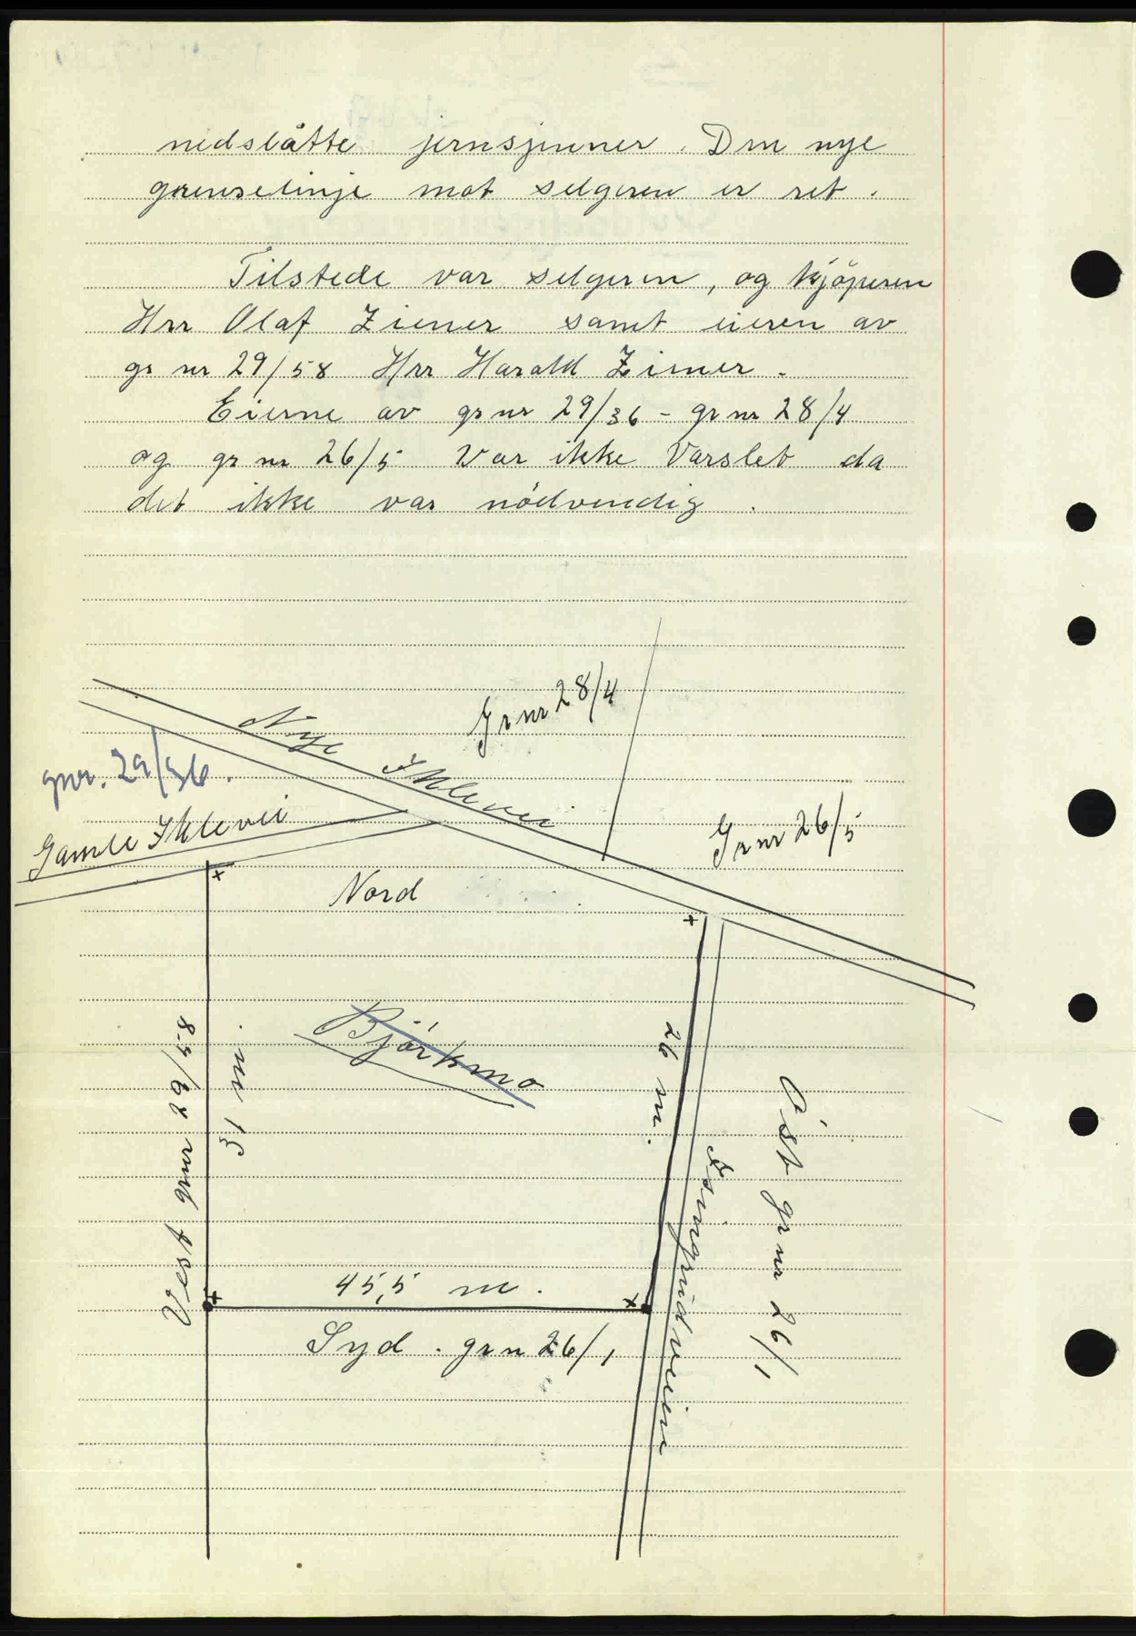 nedslåtte jernsjinner. Den nye
grenselinje mot selgeren er ret.
Tilstede var selgeren, og kjöperen
Hrr Olaf Ziener samt eieren av
gr nr 29/58 Hrr Harald Ziener.
Eierne av gr nr 29/36 - gr nr 28/4
og gr nr 26/5 var ikke Varslet da
det ikke var nödvendig.
Gr nr 28/4
Nye Ihlevei
gnr. 29/36.
Gamle Ihlevei
Gr nr 26/5
Nord
Björkmo
Vest grnr 29/58
31 m.
26 m.
Öst gr nr 26/1
45,5 m.
Syd. gr n 26/1